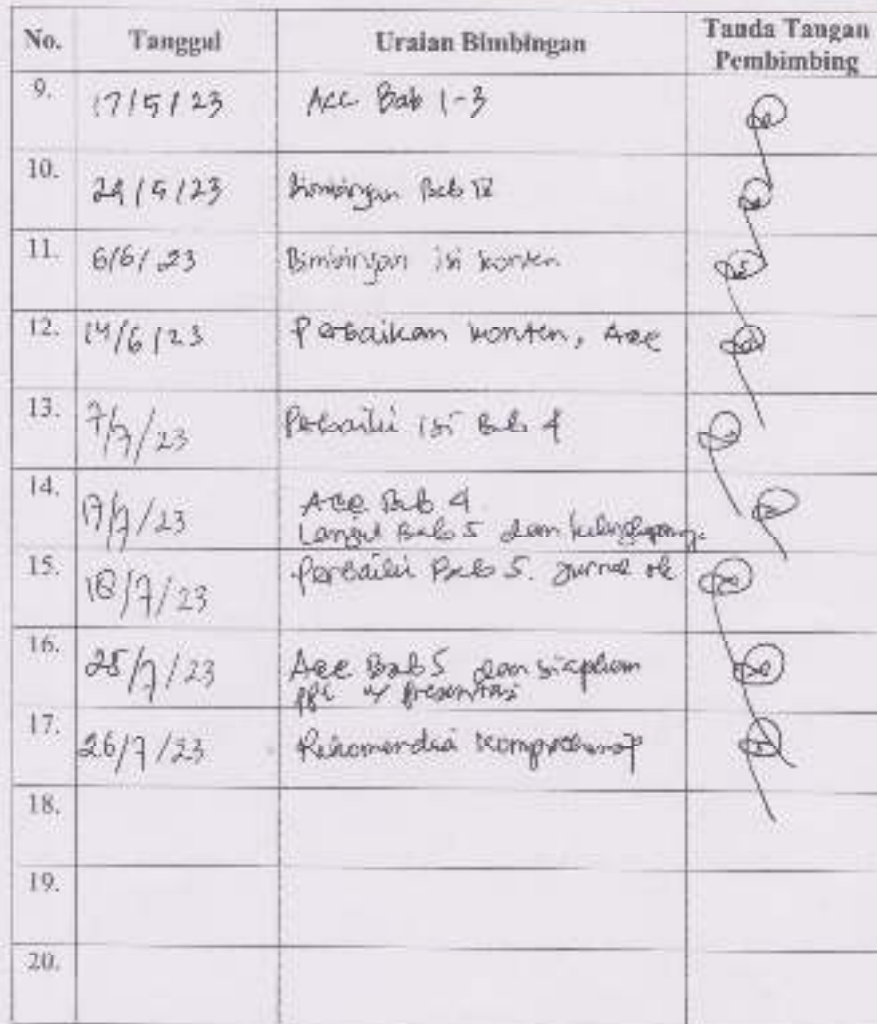 No. Tanggal Uraian Bimbingan Tanda Tangan
Pembimbing
9. 17/5/23 Acc Bab 1-3
10. 29/5/23 Bimbingan Bab IV
11. 6/6/23 Bimbingan isi konten
12. 14/6/23 Perbaikan konten, Acc
13. 7/7/23 Perbaiki isi Bab 4
14. 17/7/23 Acc Bab 4
Lanjut Bab 5 dan
15. 18/7/23 Perbaiki Bab 5. Jurnal ok
16. 25/7/23 Acc Bab 5 dan siapkan
ppt u/ presentasi
17. 26/7/23
18.
19.
20.